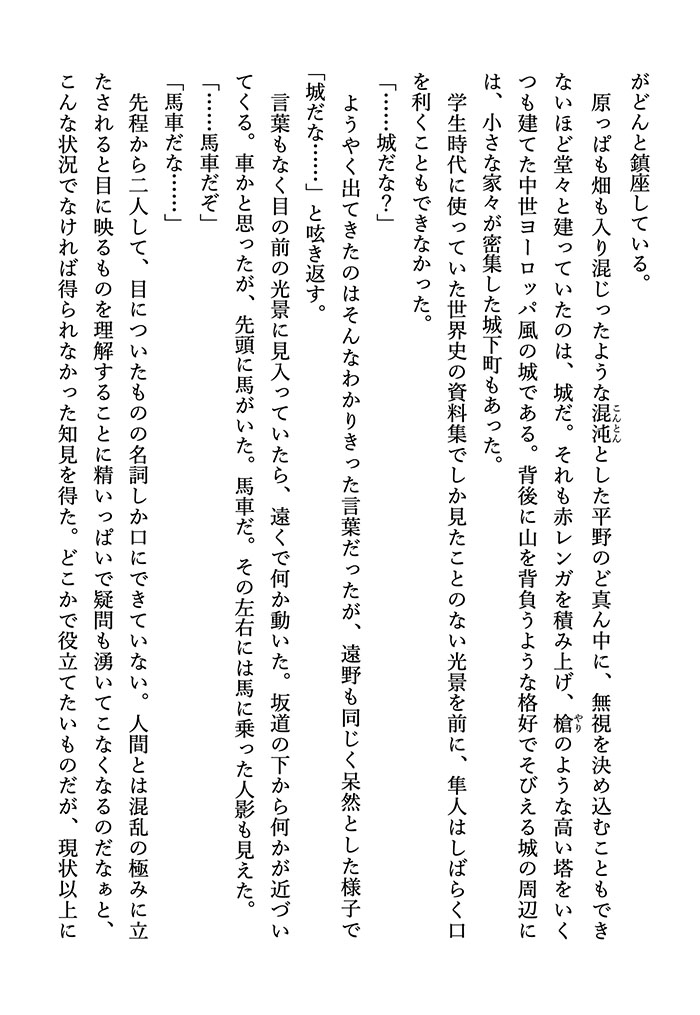 がどんと鎮座している。
　原っぱも畑も入り混じったような混沌とした平野のど真ん中に、無視を決め込むこともでき
ないほど堂々と建っていたのは、城だ。それも赤レンガを積み上げ、槍のような高い塔をいく
つも建てた中世ヨーロッパ風の城である。背後に山を背負うような格好でそびえる城の周辺に
は、小さな家々が密集した城下町もあった。
　学生時代に使っていた世界史の資料集でしか見たことのない光景を前に、隼人はしばらく口
を利くこともできなかった。
「……城だな？」
　ようやく出てきたのはそんなわかりきった言葉だったが、遠野も同じく呆然とした様子で
「城だな……」と呟き返す。
　言葉もなく目の前の光景に見入っていたら、遠くで何か動いた。坂道の下から何かが近づい
てくる。車かと思ったが、先頭に馬がいた。馬車だ。その左右には馬に乗った人影も見えた。
「……馬車だぞ」
「馬車だな……」
　先程から二人して、目についたものの名詞しか口にできていない。人間とは混乱の極みに立
たされると目に映るものを理解することに精いっぱいで疑問も湧いてこなくなるのだなぁと、
こんな状況でなければ得られなかった知見を得た。どこかで役立てたいものだが、現状以上に
こんとん
やり